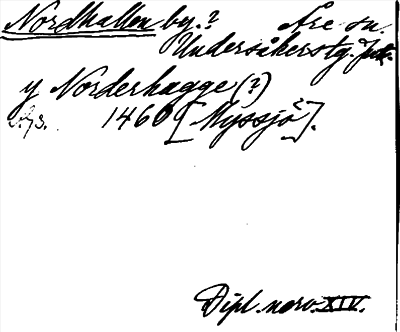 Nordhallen by.? Åre sn.
Undersåkerstg. Jtl.
y Norderhagge (?)
1460 [Myssjö].
Dipl. norv. XIV.